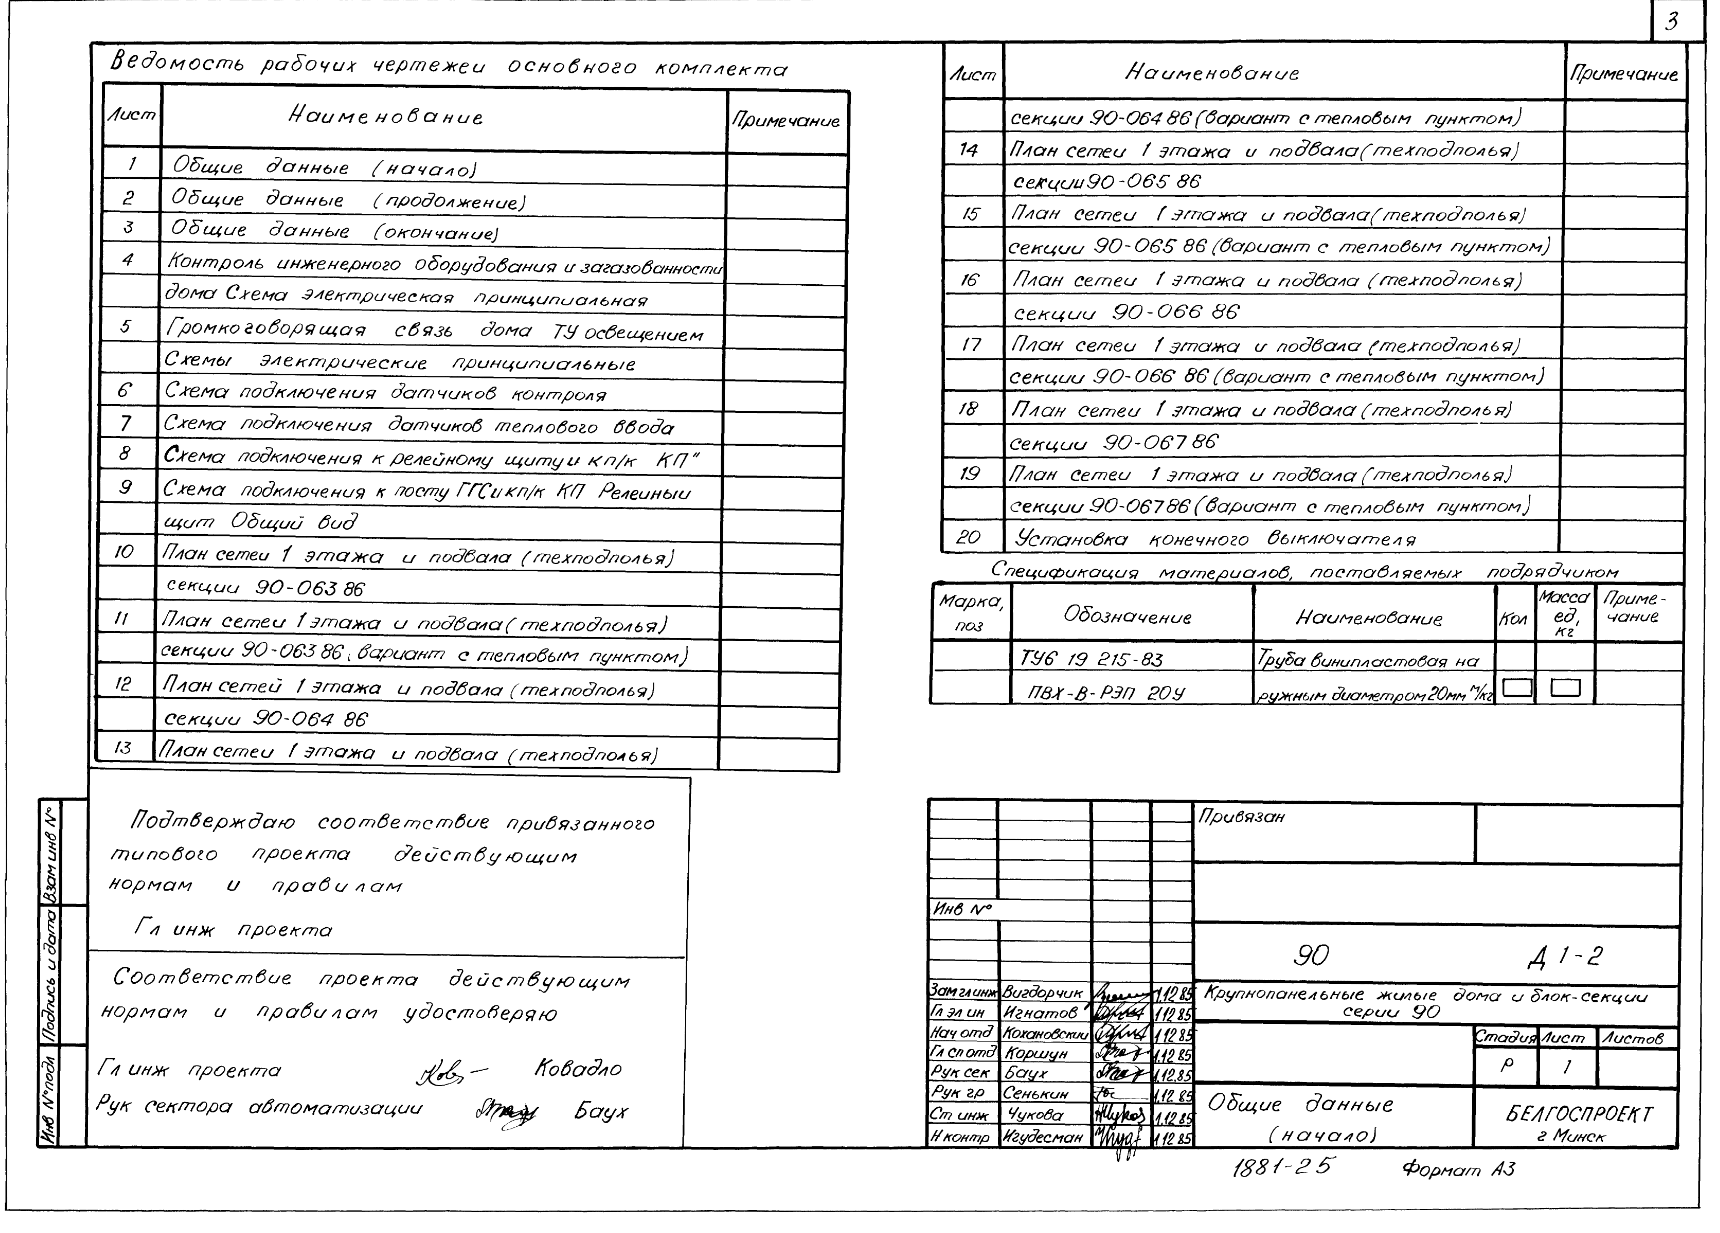 3
Ведомость рабочих чертежеи основного комплекта
Лист Наименование Примечание
1 Общие данные (начало)
2 Общие данные (продолжение)
3 Общие данные (окончание)
4 Контроль инженерного оборудования и загазованности
дома Схема электрическая принципиальная
5 Громкоговорящая связь дома ТУ освещением
Схемы электрические принципиальные
6 Схема подключения датчиков контроля
7 Схема подключения датчиков теплового ввода
8 Схема подключения к релейному щиту и кп/к КП"
9 Схема подключения к посту ГГС и кп/к КП Релеиныи
щит Общий вид
10 План сетеи 1 этажа и подвала (техподполья)
секции 90-063 86
11 План сетеи 1 этажа и подвала (техподполья)
секции 90-063 86, вариант с тепловым пунктом)
12 План сетей 1 этажа и подвала (техподполья)
секции 90-064 86
13 План сетеи 1 этажа и подвала (техподполья)
Лист Наименование Примечание
секции 90-064 86 (вариант с тепловым пунктом)
14 План сетеи 1 этажа и подвала (техподполья)
секции 90-065 86
15 План сетеи 1 этажа и подвала (техподполья)
секции 90-065 86 (вариант с тепловым пунктом)
16 План сетеи 1 этажа и подвала (техподполья)
секции 90-066 86
17 План сетеи 1 этажа и подвала (техподполья)
секции 90-066 86 (вариант с тепловым пунктом)
18 План сетеи 1 этажа и подвала (техподполья)
секции 90-067 86
19 План сетеи 1 этажа и подвала (техподполья)
секции 90-067 86 (вариант с тепловым пунктом)
20 Установка конечного выключателя
Спецификация материалов, поставляемых подрядчиком
Марка, поз Обозначение Наименование Кол Масса ед, кг Приме-чание
ТУ6 19 215-83 Труба винипластовая на
ПВХ-В-РЭП 20У ружным диаметром 20мм м/кг
Подтверждаю соответствие привязанного
типового проекта действующим
нормам и правилам
Гл инж проекта
Соответствие проекта действующим
нормам и правилам удостоверяю
Гл инж проекта Ковадло
Рук сектора автоматизации Баух
Взам инв N°
Подпись и дата
Инв N° подл
Привязан
Инв N°
90 Д 1-2
Зам гл инж Вигдорчик 1.12 85
Гл эл ин Игнатов 1.12 85
Нач отд Кохановский 1.12 85
Гл сп отд Коршун 1.12 85
Рук сек Баух 1.12.85
Рук гр Сенькин 1.12 85
Ст инж Чукова 1.12 85
Н контр Игудесман 1.12 85
Крупнопанельные жилые дома и блок-секции
серии 90
Стадия Лист Листов
Р 1
Общие данные
(начало)
БЕЛГОСПРОЕКТ
г Минск
1881-25 Формат А3